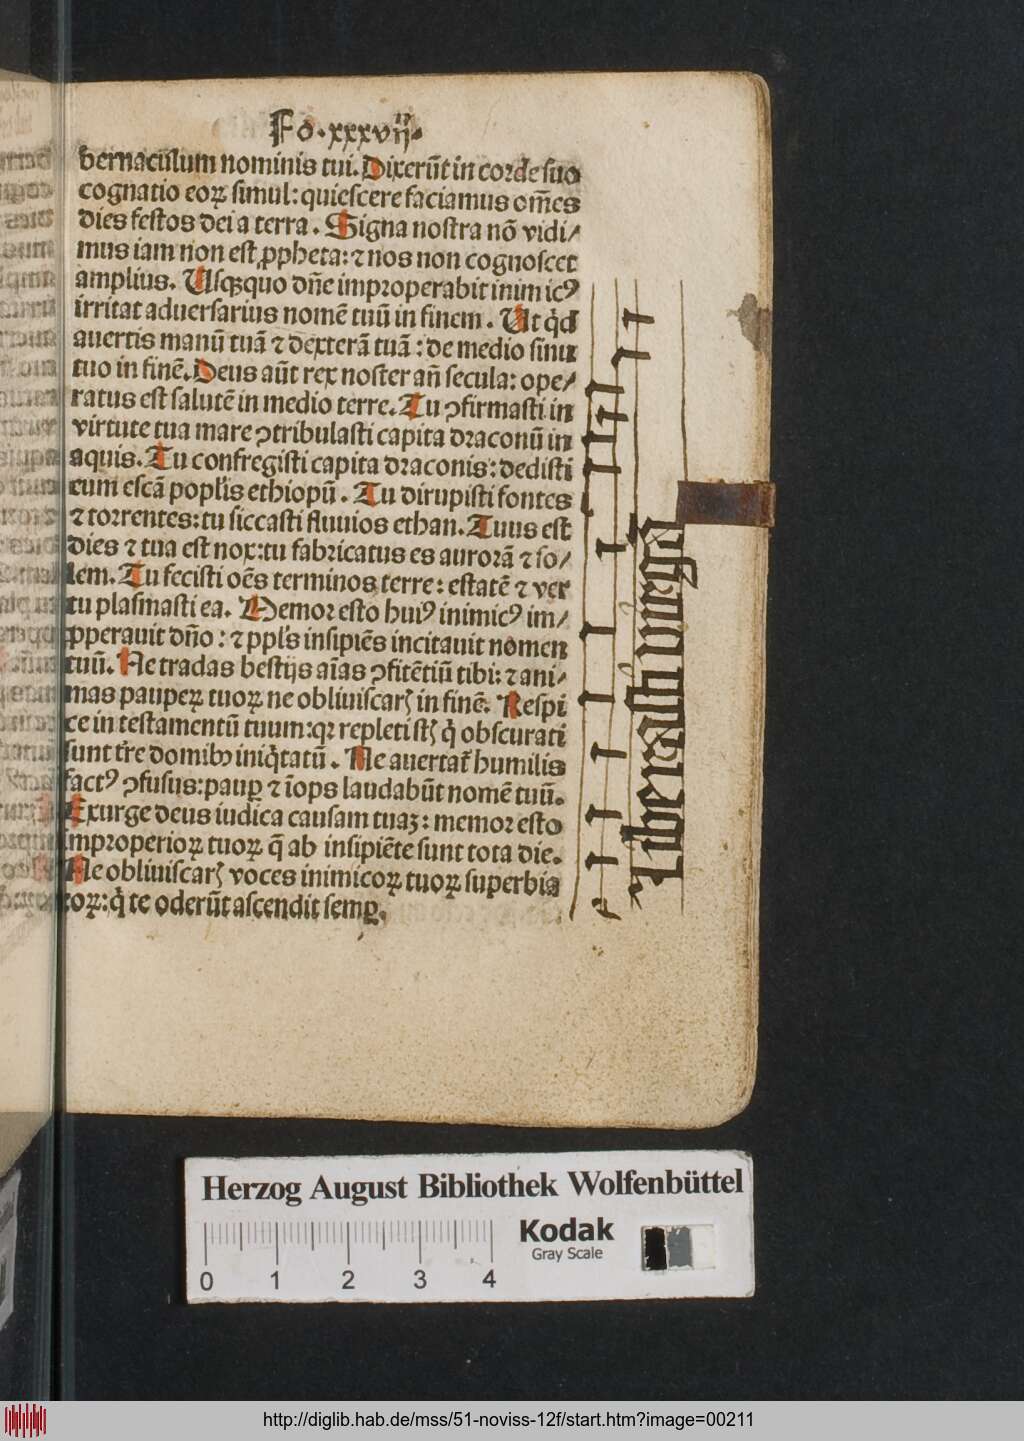 Fo.xxxvij.
bernaculum nominis tui. Dixerūt in corde suo
cognatio eoꝝ simul: quiescere faciamus om̄es
dies festos dei a terra. Signa nostra nō vidi/
mus iam non est ꝓpheta: ⁊ nos non cognoscet
amplius. Usqꝫquo dn̄e improperabit inimicꝰ
irritat aduersarius nomē tuū in finem. Ut qͥd
auertis manū tuā ⁊ dexterā tuā: de medio sinu
tuo in finē. Deus aūt rex noster an̄ secula: ope/
ratus est salutē in medio terre. Tu ꝯfirmasti in
virtute tua mare ꝯtribulasti capita draconū in
aquis. Tu confregisti capita draconis: dedisti
eum escā popl̄is ethiopū. Tu dirupisti fontes
⁊ torrentes: tu siccasti fluuios ethan. Tuus est
dies ⁊ tua est nox: tu fabricatus es aurorā ⁊ so/
lem. Tu fecisti oēs terminos terre: estatē ⁊ ver
tu plasmasti ea. Memor esto huiꝰ inimicꝰ im/
ꝓperauit dn̄o: ⁊ ppl̄s insipiēs incitauit nomen
tuū. Ne tradas bestijs aīas ꝯfitētiū tibi: ⁊ ani/
mas pauperꝝ tuoꝝ ne obliuiscarꝭ in finē. Respi
ce in testamentū tuum: qꝛ repleti sꝉ qͥ obscurati
sunt tr̄e domibꝰ iniqͥtatū. Ne auertat᷑ humilis
factꝰ ꝯfusus: pauꝑ ⁊ īops laudabūt nomē tuū.
Exurge deus iudica causam tuaꝫ: memor esto
improperioꝝ tuoꝝ q̄ ab insipiēte sunt tota die.
Ne obliuiscarꝭ voces inimicoꝝ tuoꝝ superbia
eoꝝ: qͥ te oderūt ascendit semꝑ.
Herzog August Bibliothek Wolfenbüttel
Kodak
Gray Scale
0 1 2 3 4
http://diglib.hab.de/mss/51-noviss-12f/start.htm?image=00211